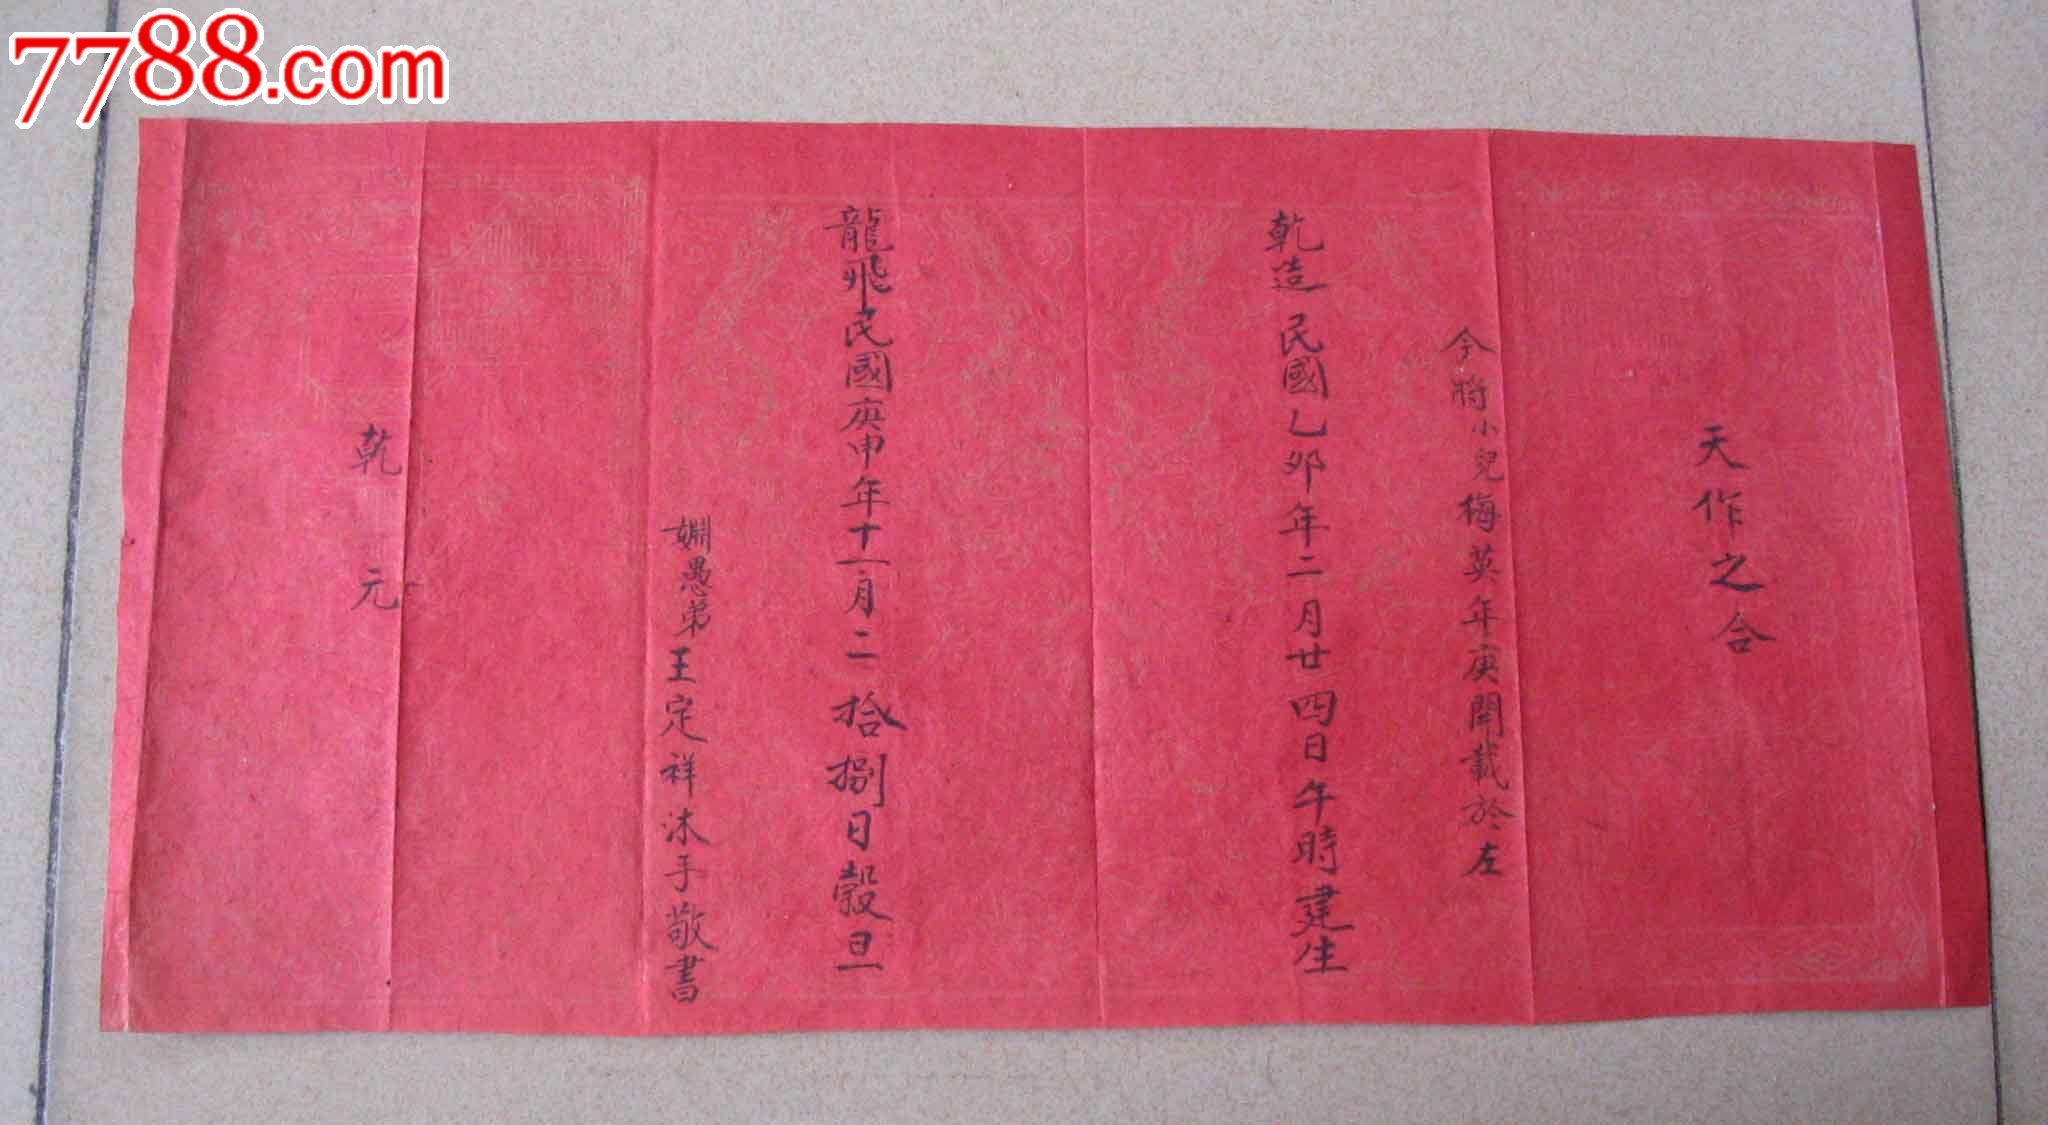 7788.com
天作之合
今將小兒梅英年庚開載於左
乾造民國乙卯年二月廿四日午時建生
龍飛民國庚申年十一月二拾捌日穀旦
姻愚弟王定祥沐手敬書
乾元